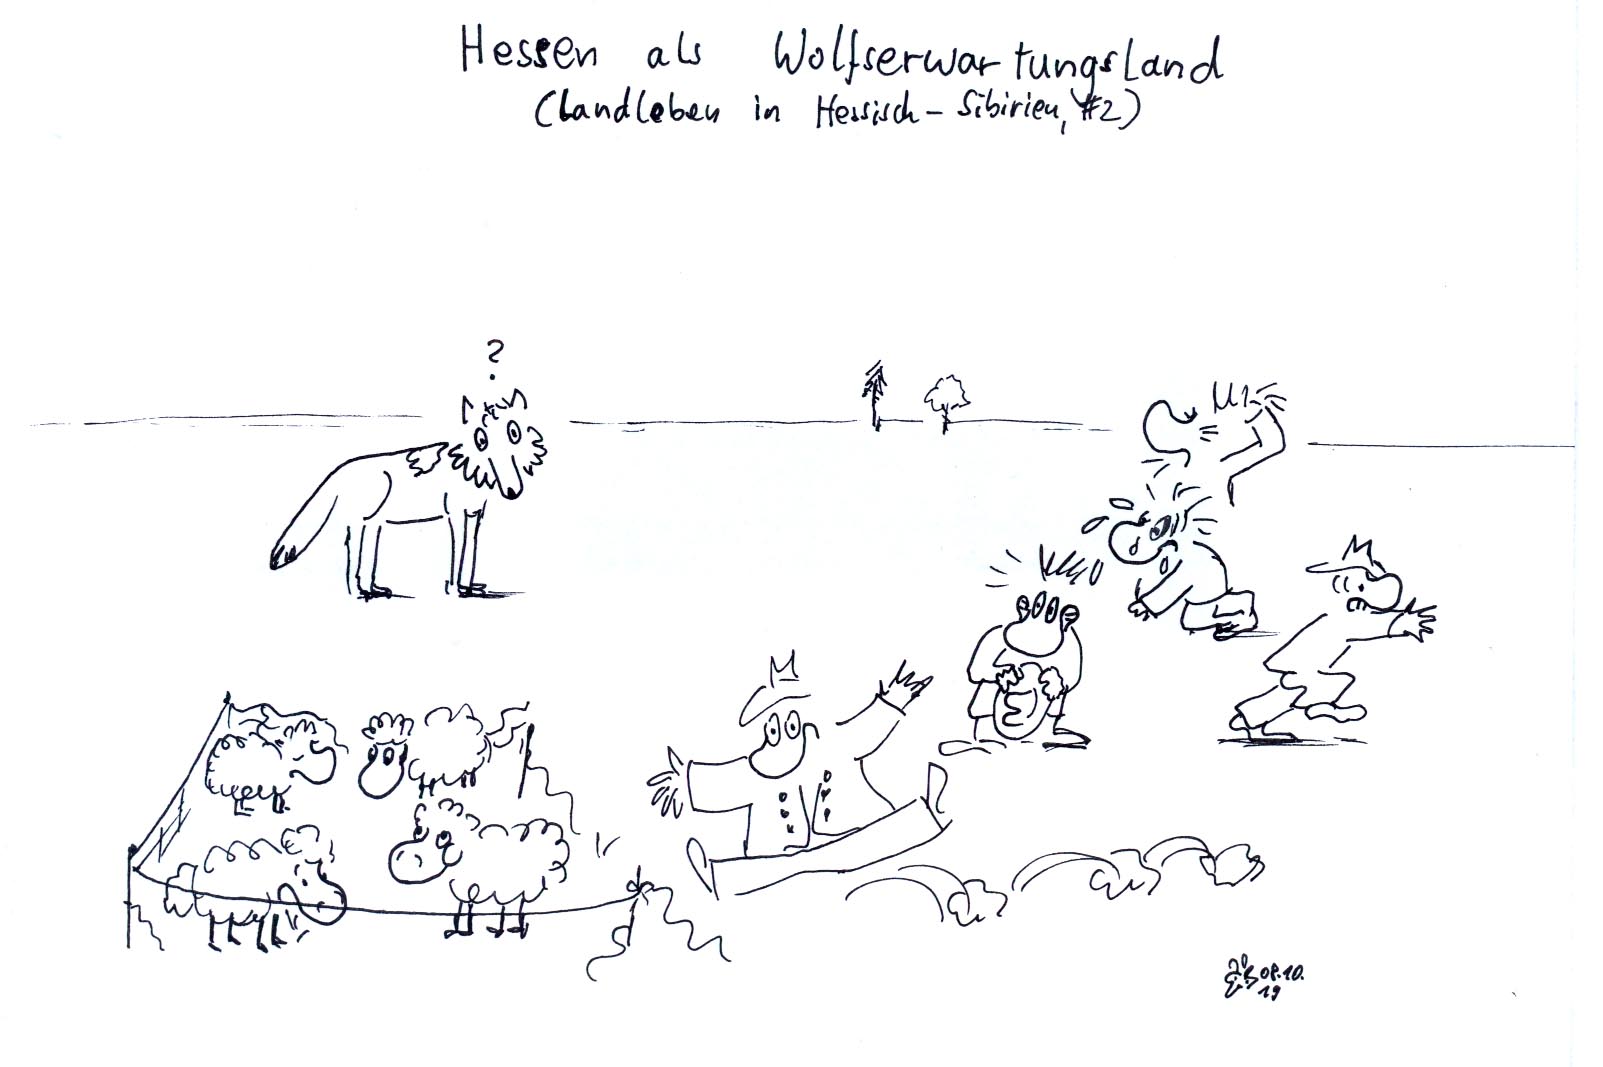 Hessen als Wolfserwartungsland
(Landleben in Hessisch-Sibirien, #2)
?
08.10.
19